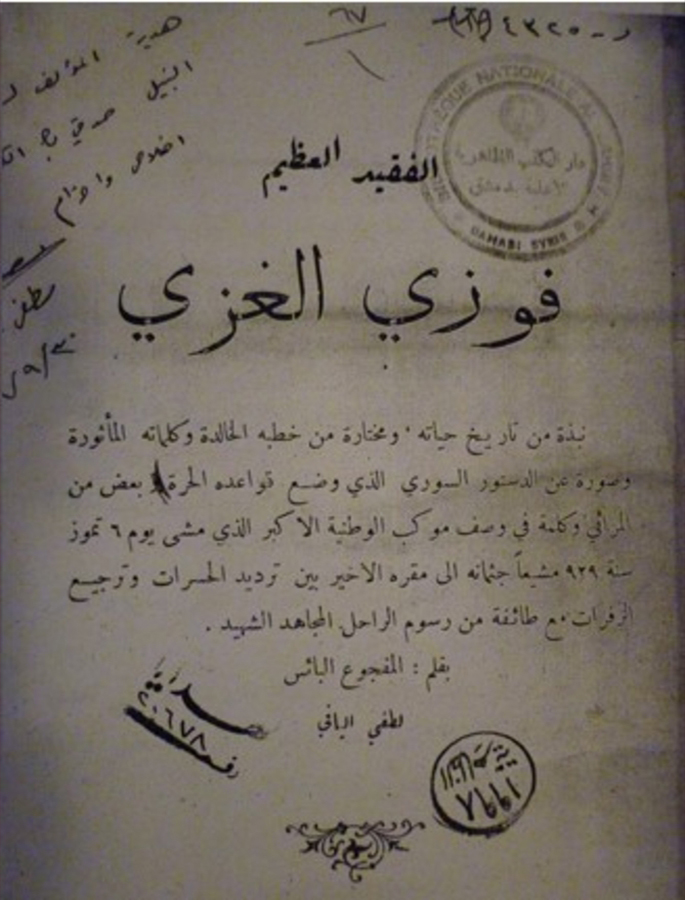 ٦٧
١
هدية المؤلف
النبيل صدقي
اخلاص واحترام
BIBLIOTHEQUE NATIONALE AL
دار الكتب الظاهرية
الاهلية بدمشق
DAMAS SYRIE
الفقيد العظيم
فوزي الغزي
نبذة من تاريخ حياته ٬ ومختارة من خطبه الخالدة وكلماته المأثورة
وصورة عن الدستور السوري الذي وضع قواعده الحرة بعض من
المراثي وكلمة في وصف موكب الوطنية الاكبر الذي مشى يوم ٦ تموز
سنة ٩٢٩ مشيعاً جثمانه الى مقره الاخير بين ترديد الحسرات وترجيع
الزفرات مع طائفة من رسوم الراحل المجاهد الشهيد .
بقلم : المفجوع البائس
لطفي اليافي
رقم ٢٠٦٧٨